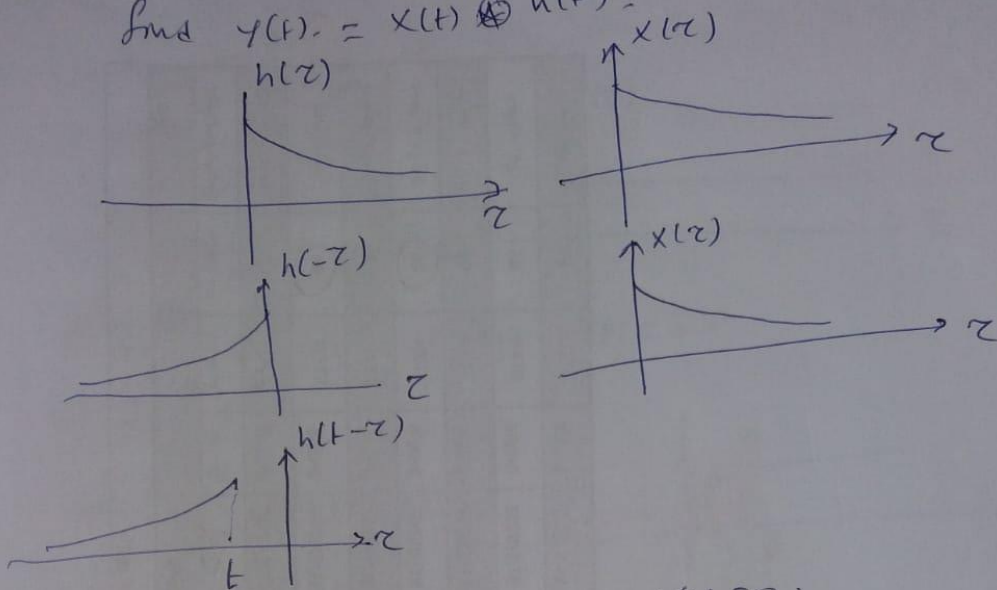 find y(t). = x(t) ⊛ h(t).
h(τ)
x(τ)
τ
τ
h(-τ)
x(τ)
τ
τ
h(t-τ)
τ
t